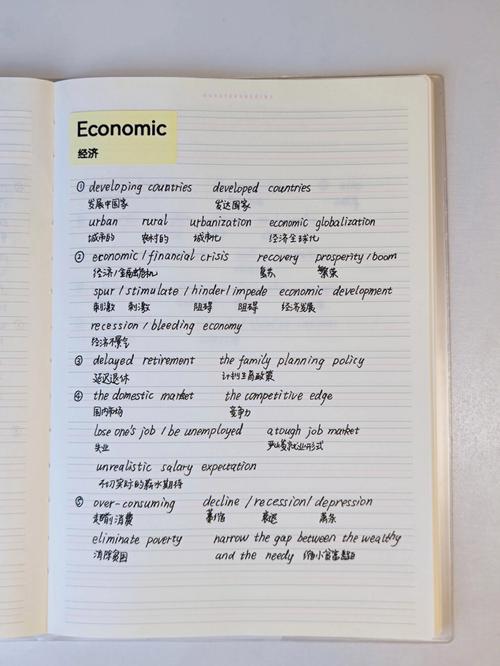 Economic
经济
① developing countries developed countries
发展中国家 发达国家
urban rural urbanization economic globalization
城市的 农村的 城市化 经济全球化
② economic / financial crisis recovery prosperity / boom
经济/金融危机 复苏 繁荣
spur / stimulate / hinder / impede economic development
刺激 刺激 阻碍 阻碍 经济发展
recession / bleeding economy
经济不景气
③ delayed retirement the family planning policy
延迟退休 计划生育政策
④ the domestic market the competitive edge
国内市场 竞争力
lose one's job / be unemployed a tough job market
失业 严峻就业形式
unrealistic salary expectation
不切实际的薪水期待
⑤ over-consuming decline / recession / depression
超前消费 萎缩 衰退 萧条
eliminate poverty narrow the gap between the wealthy
消除贫困 and the needy 缩小贫富差距